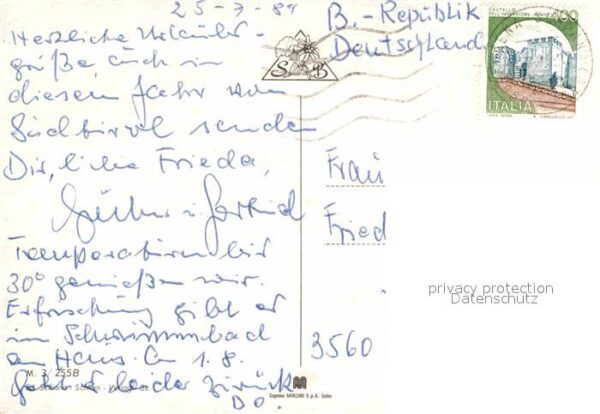 25-7-89
Herzliche Urlaubs-
grüße, auch in
diesem Jahr von
Südtirol senden
Dir, liebe Frieda,
Günther u. Gertrud
Temperaturen bis
30° genießen wir.
Erfrischung gibt es
im Schwimmbad
am Haus. Am 1.8.
geht's leider zurück
D.O.
B.-Republik
Deutschland
Frau
Fried
3560
S B
CASTELLO
ITALIA
M. 3/255B
privacy protection
Datenschutz